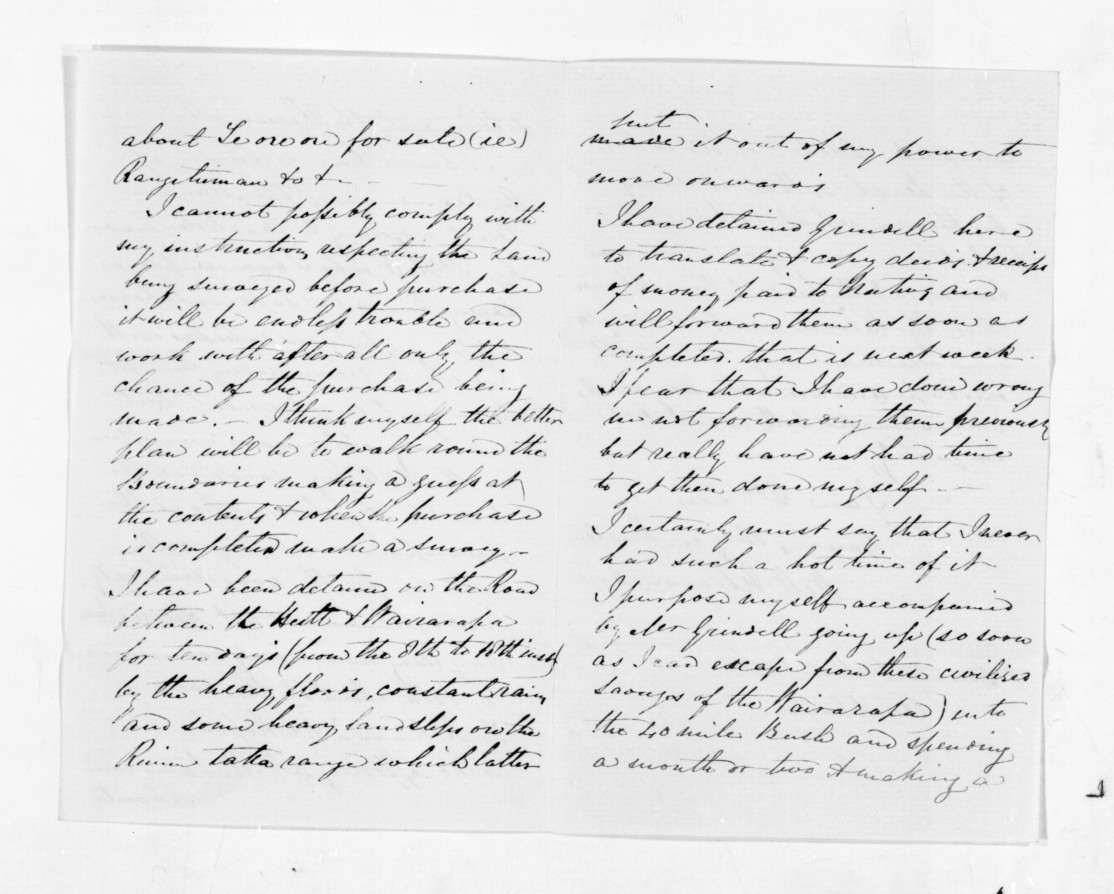 about Te ore ore for sale (ie)
Rangituman &c &c
I cannot possibly comply with
my instruction respecting the Land
being surveyed before purchase
it will be endless trouble and
work with after all only the
chance of the purchase being
made. — I think myself the better
plan will be to walk round the
Boundaries making a guess at
the contents & when the purchase
is completed make a survey —
I have been detained on the Road
between the Hutt & Wairarapa
for ten days (from the 8th to 18th inst)
by the heavy floods, constant rain
and some heavy land slips on the
Rimu taka range which latter
put
made it out of my power to
move onwards
I have detained Grindell here
to translate & copy deeds & receipts
of money paid to Natives and
will forward them as soon as
completed. that is next week.
I fear that I have done wrong
in not forwarding them previously
but really have not had time
to get them done myself —
I certainly must say that I never
had such a hot time of it
I purpose myself accompanied
by Mr Grindell going up (so soon
as I can escape from these civilized
savages of the Wairarapa) into
the 40 mile Bush and spending
a month or two & making a